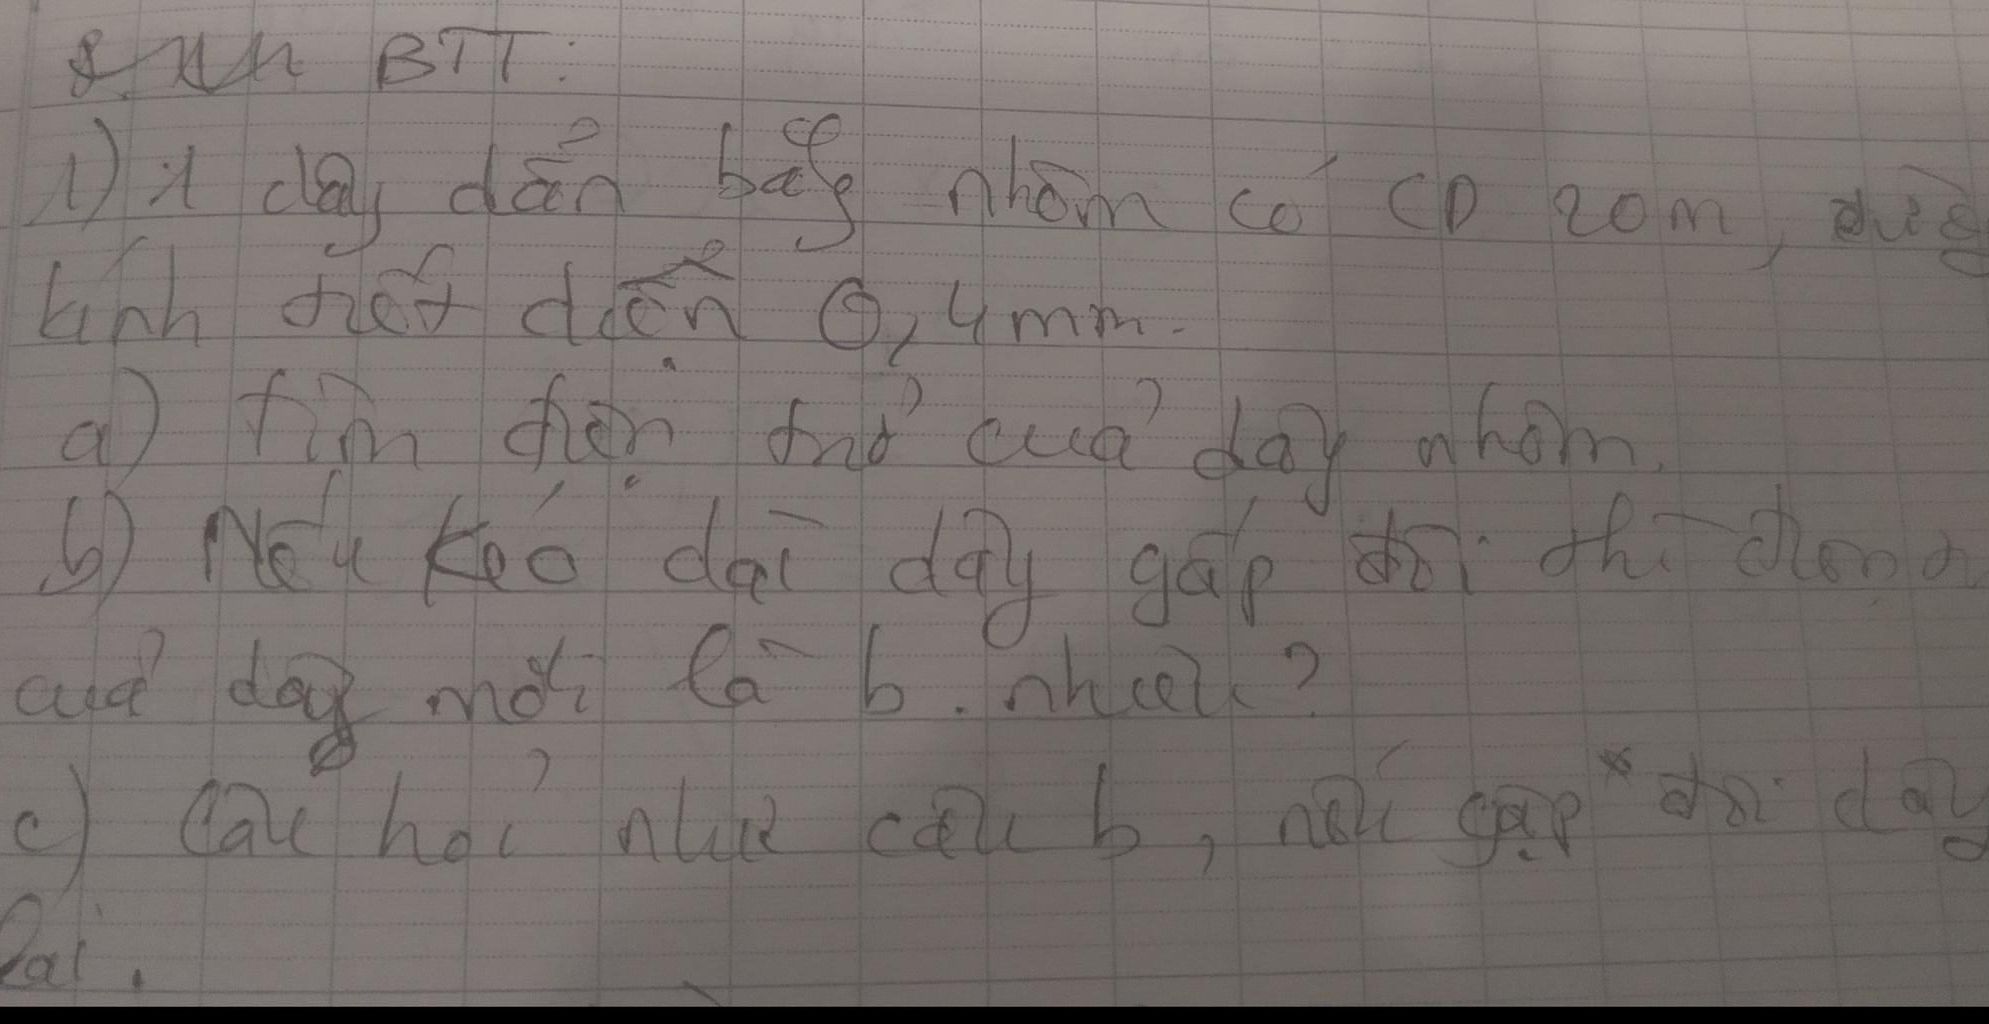 BTT:
1) 1 dây dẫn bằg nhôm có CD 20m, đườg
kính tiết diện 0,4mm.
a) Tìm điện trở của dây nhôm.
b) Nếu kéo dài dây gấp đôi thì điện
của dây mới là b. nhiêu?
c) Câu hỏi như câu b, nếu gập * đôi dây
lại.